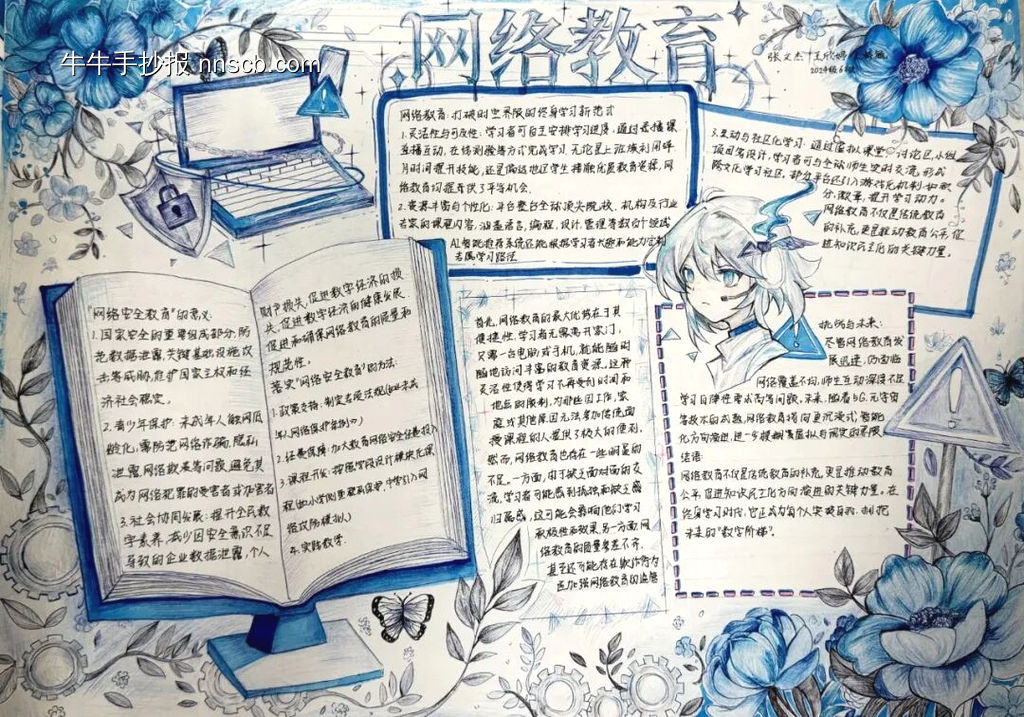 牛牛手抄报 nnscb.com
网络教育
张文杰 王欣婷
2024级6班
网络教育:打破时空界限的终身学习新范式
1.灵活性与可及性:学习者可自主安排学习进度,通过录播课
直播互动,在线测验等方式完成学习,无论是上班族利用碎
片时间提升技能,还是偏远地区学生接触优质教育资源,网
络教育均提供了平等机会.
2.资源丰富与个性化:平台整合全球顶尖院校、机构及行业
专家的课程内容,涵盖语言,编程,设计,管理等数百个领域
AI智能推荐系统还能根据学习者兴趣和能力定制
专属学习路径
3.互动与社区化学习:通过虚拟课堂,讨论区,小组
项目等设计,学习者可与全球师生实时交流,形成
跨文化学习社区,部分平台还引入游戏化机制,如积
分,徽章,提升学习动力。
网络教育不仅是传统教育
的补充,更是推动教育公平,促
进知识民主化的关键力量。
"网络安全教育"的意义:
1.国家安全的重要组成部分:防
范数据泄露,关键基础设施攻
击等威胁,维护国家主权和经
济社会稳定。
2.青少年保护:未成年人触网低
龄化,需防范网络诈骗,隐私
泄露,网络欺凌等问题,避免其
成为网络犯罪的受害者或加害者
3.社会协同发展:提升全民数
字素养,减少因安全意识不足
导致的企业数据泄露,个人
财产损失,促进数字经济的损
失,促进数字经济的健康发展
促进和确保网络教育的质量和
规范性。
落实"网络安全教育"的方法:
1.政策支持:制定专项法规(如《未成
年人网络保护条例》)
2.经费保障:加大教育网络安全经费投入
3.课程开发:按照学段设计模块化课
程(如小学侧重隐私保护,中学引入网
络攻防模拟)
4.实践教学.
首先,网络教育的最大优势在于其
便捷性,学习者无需离开家门,
只需一台电脑或手机,就能随时
随地访问丰富的教育资源,这种
灵活性使得学习不再受到时间和
地点的限制,为那些因工作,家
庭或其他原因无法参加传统面
授课程的人提供了极大的便利.
然而,网络教育也存在一些明显的
不足,一方面,由于缺乏面对面的交
流,学习者可能感到孤独和缺乏
归属感,这可能会影响他们学习
积极性和效果,另一方面,网
络教育的质量参差不齐,
甚至还可能存在欺诈行为
应加强网络教育的监管
挑战与未来:
尽管网络教育发
展迅速,仍面临
网络覆盖不均,师生互动深度不足
学习自律性要求高等问题,未来,随着5G,元宇宙
等技术的成熟,网络教育将向更沉浸式,智能
化方向演进,进一步模糊虚拟与现实的界限
结语:
网络教育不仅是传统教育的补充,更是推动教育
公平,促进知识民主化方向演进的关键力量。在
终身学习时代,它正成为每个人实现自我,创把
未来的"数字阶梯"。